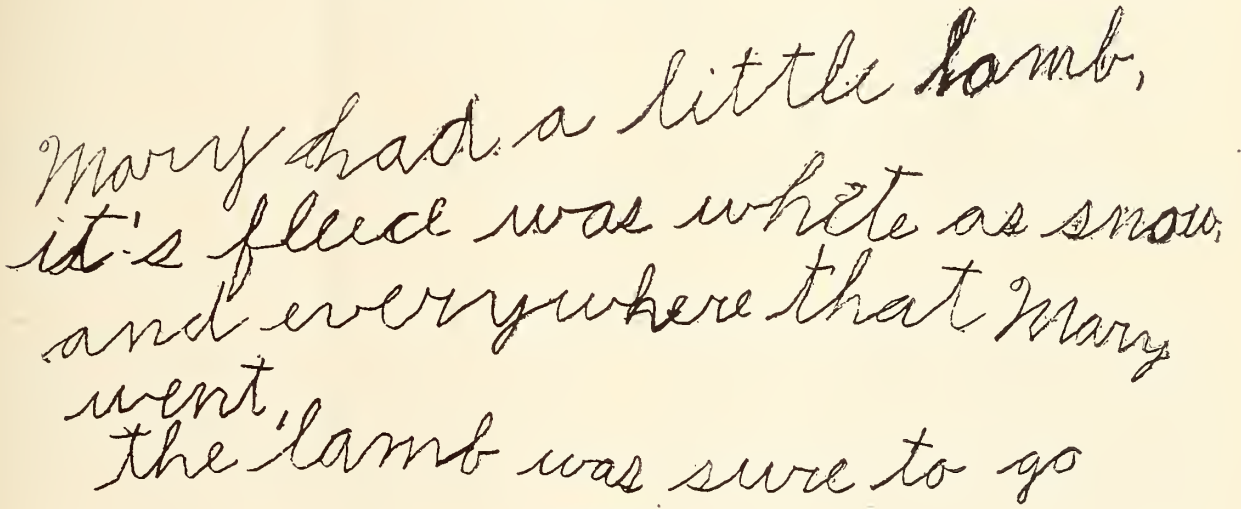 Mary had a little lamb,
it's fleece was white as snow,
and everywhere that Mary
went,
the lamb was sure to go